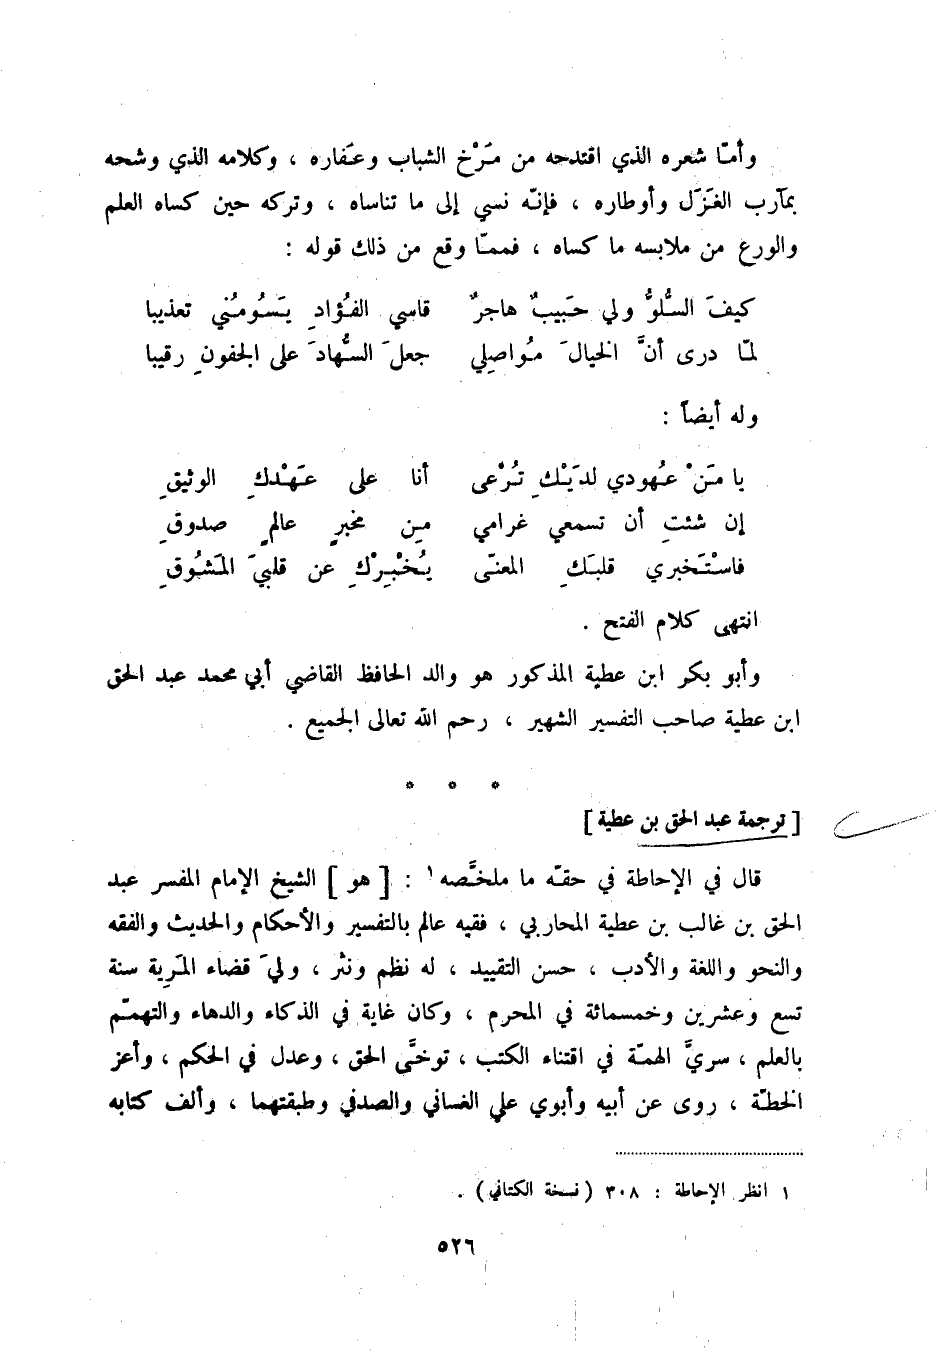 وأمّا شعره الذي اقتدحه من مَرْخ الشباب وعَفاره ، وكلامه الذي وشحه
بمآرب الغَزَل وأوطاره ، فإنّه نسي إلى ما تناساه ، وتركه حين كساه العلم
والورع من ملابسه ما كساه ، فممّا وقع من ذلك قوله :
كيفَ السُّلوُّ ولي حَبيبٌ هاجرٌ قاسي الفُؤادِ يَسُومُني تعذيبا
لمّا درى أنَّ الخيالَ مُواصلِي جعلَ السُّهادَ على الجفونِ رقيبا
وله أيضاً :
يا مَنْ عُهودي لدَيْكِ تُرْعى أنا على عَهْدكِ الوثيقِ
إن شئتِ أن تسمعي غرامي مِن مخبرٍ عالمٍ صدوقِ
فاسْتَخبري قلبَكِ المعنّى يُخْبِرْكِ عن قلبيَ المَشُوقِ
انتهى كلام الفتح .
وأبو بكر ابن عطية المذكور هو والد الحافظ القاضي أبي محمد عبد الحق
ابن عطية صاحب التفسير الشهير ، رحم الله تعالى الجميع .
* * *
[ ترجمة عبد الحق بن عطية ]
قال في الإحاطة في حقّه ما ملخَّصه ١ : [ هو ] الشيخ الإمام المفسر عبد
الحق بن غالب بن عطية المحاربي ، فقيه عالم بالتفسير والأحكام والحديث والفقه
والنحو واللغة والأدب ، حسن التقييد ، له نظم ونثر ، وليَ قضاء المَرية سنة
تسع وعشرين وخمسمائة في المحرم ، وكان غاية في الذكاء والدهاء والتهمّم
بالعلم ، سريَّ الهمّة في اقتناء الكتب ، توخَّى الحق ، وعدل في الحكم ، وأعز
الخطّة ، روى عن أبيه وأبوي علي الغساني والصدفي وطبقتهما ، وألف كتابه
١ انظر الإحاطة : ٣٠٨ (نسخة الكتاني) .
٥٢٦